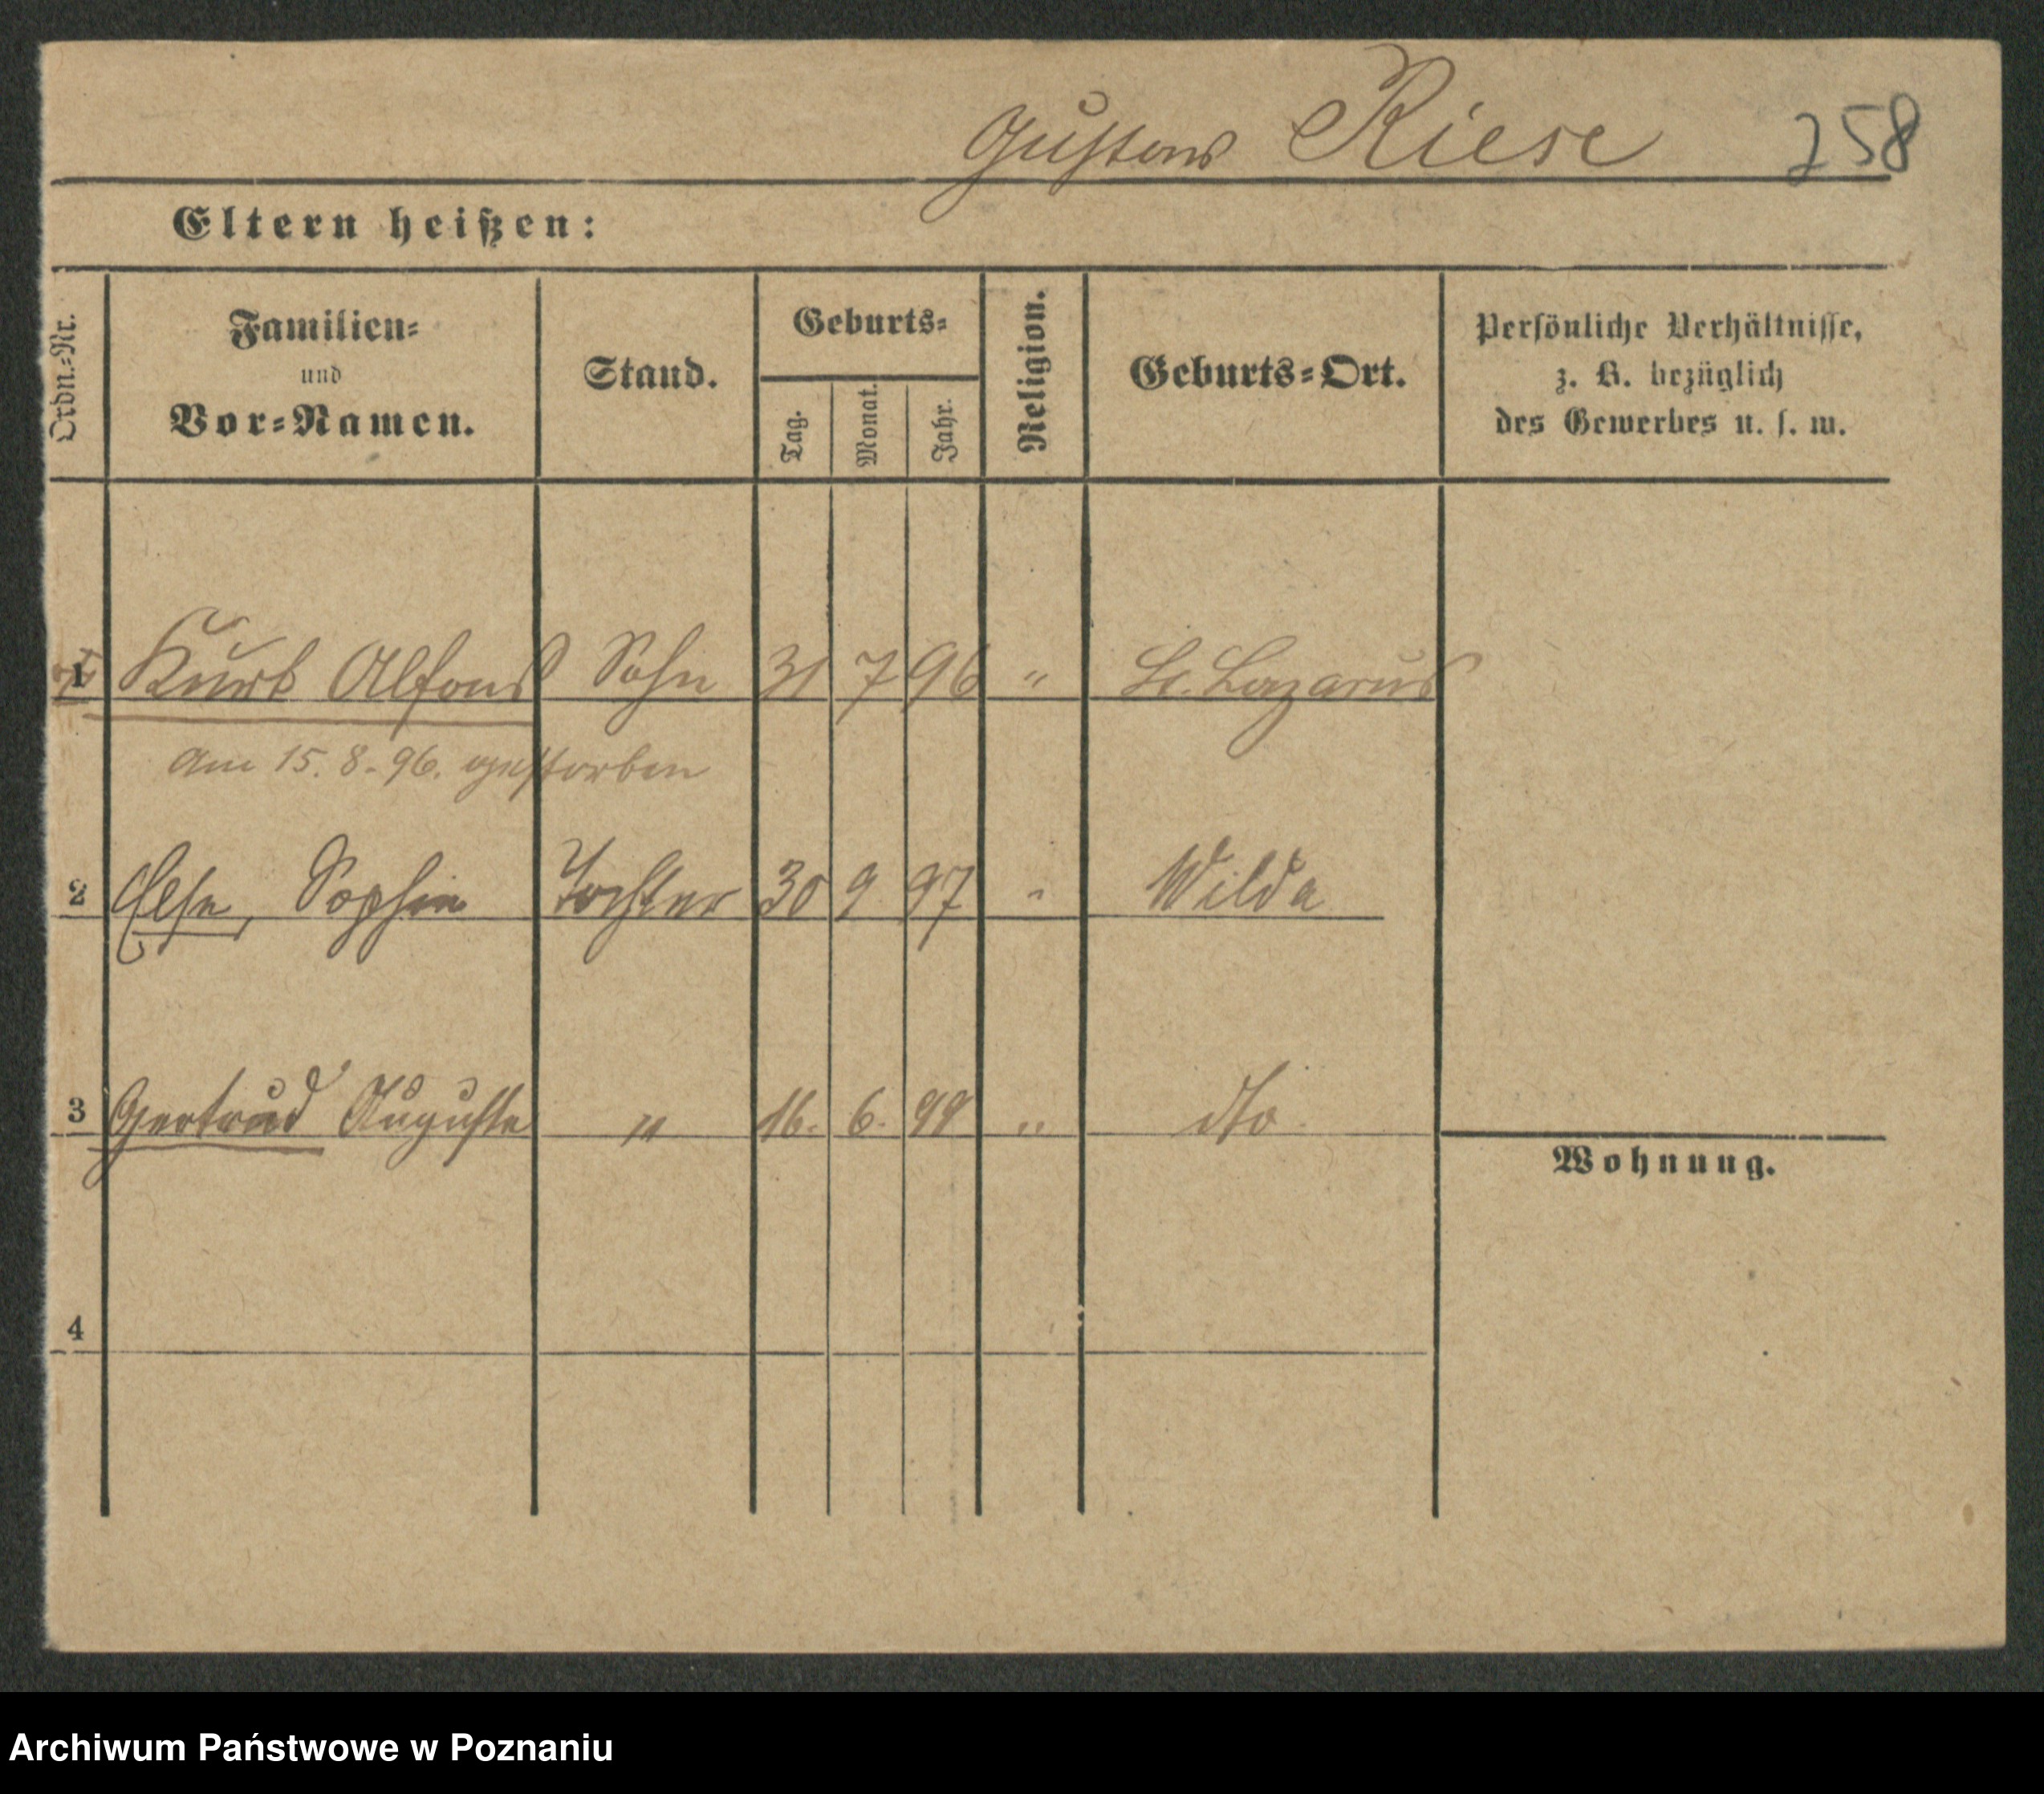 Gustav Riese 258
Eltern heißen:
Ordn.-Nr.
Familien-
und
Vor-Namen.
Stand.
Geburts-
Tag.
Monat.
Jahr.
Religion.
Geburts-Ort.
Persönliche Verhältnisse,
z. B. bezüglich
des Gewerbes u. s. w.
1 Kurt Alfons Sohn 31 7 96 " St. Lazarus
Am 15. 8. 96. gestorben
2 Else, Sophie Tochter 30 9 97 " Wilda
3 Gertrud Auguste " 16. 6. 99 " dto
Wohnung.
4
Archiwum Państwowe w Poznaniu